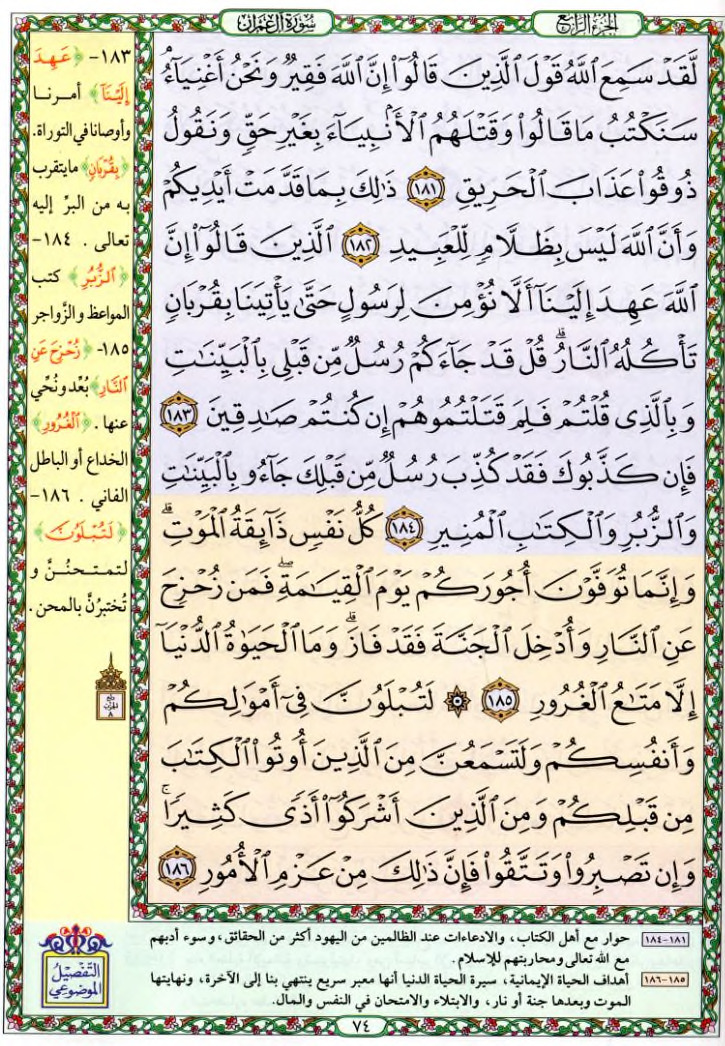 الجزء الرابع
سورة آل عمران
لَّقَدْ سَمِعَ ٱللَّهُ قَوْلَ ٱلَّذِينَ قَالُوٓا۟ إِنَّ ٱللَّهَ فَقِيرٌ وَنَحْنُ أَغْنِيَآءُ ۘ
سَنَكْتُبُ مَا قَالُوا۟ وَقَتْلَهُمُ ٱلْأَنۢبِيَآءَ بِغَيْرِ حَقٍّ وَنَقُولُ
ذُوقُوا۟ عَذَابَ ٱلْحَرِيقِ ١٨١ ذَٰلِكَ بِمَا قَدَّمَتْ أَيْدِيكُمْ
وَأَنَّ ٱللَّهَ لَيْسَ بِظَلَّامٍ لِّلْعَبِيدِ ١٨٢ ٱلَّذِينَ قَالُوٓا۟ إِنَّ
ٱللَّهَ عَهِدَ إِلَيْنَآ أَلَّا نُؤْمِنَ لِرَسُولٍ حَتَّىٰ يَأْتِيَنَا بِقُرْبَانٍ
تَأْكُلُهُ ٱلنَّارُ ۗ قُلْ قَدْ جَآءَكُمْ رُسُلٌ مِّن قَبْلِى بِٱلْبَيِّنَٰتِ
وَبِٱلَّذِى قُلْتُمْ فَلِمَ قَتَلْتُمُوهُمْ إِن كُنتُمْ صَٰدِقِينَ ١٨٣
فَإِن كَذَّبُوكَ فَقَدْ كُذِّبَ رُسُلٌ مِّن قَبْلِكَ جَآءُو بِٱلْبَيِّنَٰتِ
وَٱلزُّبُرِ وَٱلْكِتَٰبِ ٱلْمُنِيرِ ١٨٤ كُلُّ نَفْسٍ ذَآئِقَةُ ٱلْمَوْتِ ۗ
وَإِنَّمَا تُوَفَّوْنَ أُجُورَكُمْ يَوْمَ ٱلْقِيَٰمَةِ ۖ فَمَن زُحْزِحَ
عَنِ ٱلنَّارِ وَأُدْخِلَ ٱلْجَنَّةَ فَقَدْ فَازَ ۗ وَمَا ٱلْحَيَوٰةُ ٱلدُّنْيَآ
إِلَّا مَتَٰعُ ٱلْغُرُورِ ١٨٥ ۞ لَتُبْلَوُنَّ فِىٓ أَمْوَٰلِكُمْ
وَأَنفُسِكُمْ وَلَتَسْمَعُنَّ مِنَ ٱلَّذِينَ أُوتُوا۟ ٱلْكِتَٰبَ
مِن قَبْلِكُمْ وَمِنَ ٱلَّذِينَ أَشْرَكُوٓا۟ أَذًى كَثِيرًا ۚ
وَإِن تَصْبِرُوا۟ وَتَتَّقُوا۟ فَإِنَّ ذَٰلِكَ مِنْ عَزْمِ ٱلْأُمُورِ ١٨٦
١٨٣- ﴿عَهِدَ
إِلَيْنَآ﴾ أمرنا
وأوصانا في التوراة.
﴿بِقُرْبَانٍ﴾ ما يتقرب
به من البرِّ إليه
تعالى . ١٨٤-
﴿ٱلزُّبُرِ﴾ كتب
المواعظ والزَّواجر
١٨٥- ﴿زُحْزِحَ عَنِ
ٱلنَّارِ﴾ بُعِّد ونُحِّي
عنها . ﴿ٱلْغُرُورِ﴾
الخداع أو الباطل
الفاني . ١٨٦-
﴿لَتُبْلَوُنَّ﴾
لتمتحنُنَّ و
تُختبرُنَّ بالمحن .
ربع
الحزب
٨
١٨١-١٨٤ حوار مع أهل الكتاب، والادعاءات عند الظالمين من اليهود أكثر من الحقائق، وسوء أدبهم
مع الله تعالى ومحاربتهم للإسلام.
١٨٥-١٨٦ أهداف الحياة الإيمانية، سيرة الحياة الدنيا أنها معبر سريع ينتهي بنا إلى الآخرة، ونهايتها
الموت وبعدها جنة أو نار، والابتلاء والامتحان في النفس والمال.
التفصيل
الموضوعي
٧٤